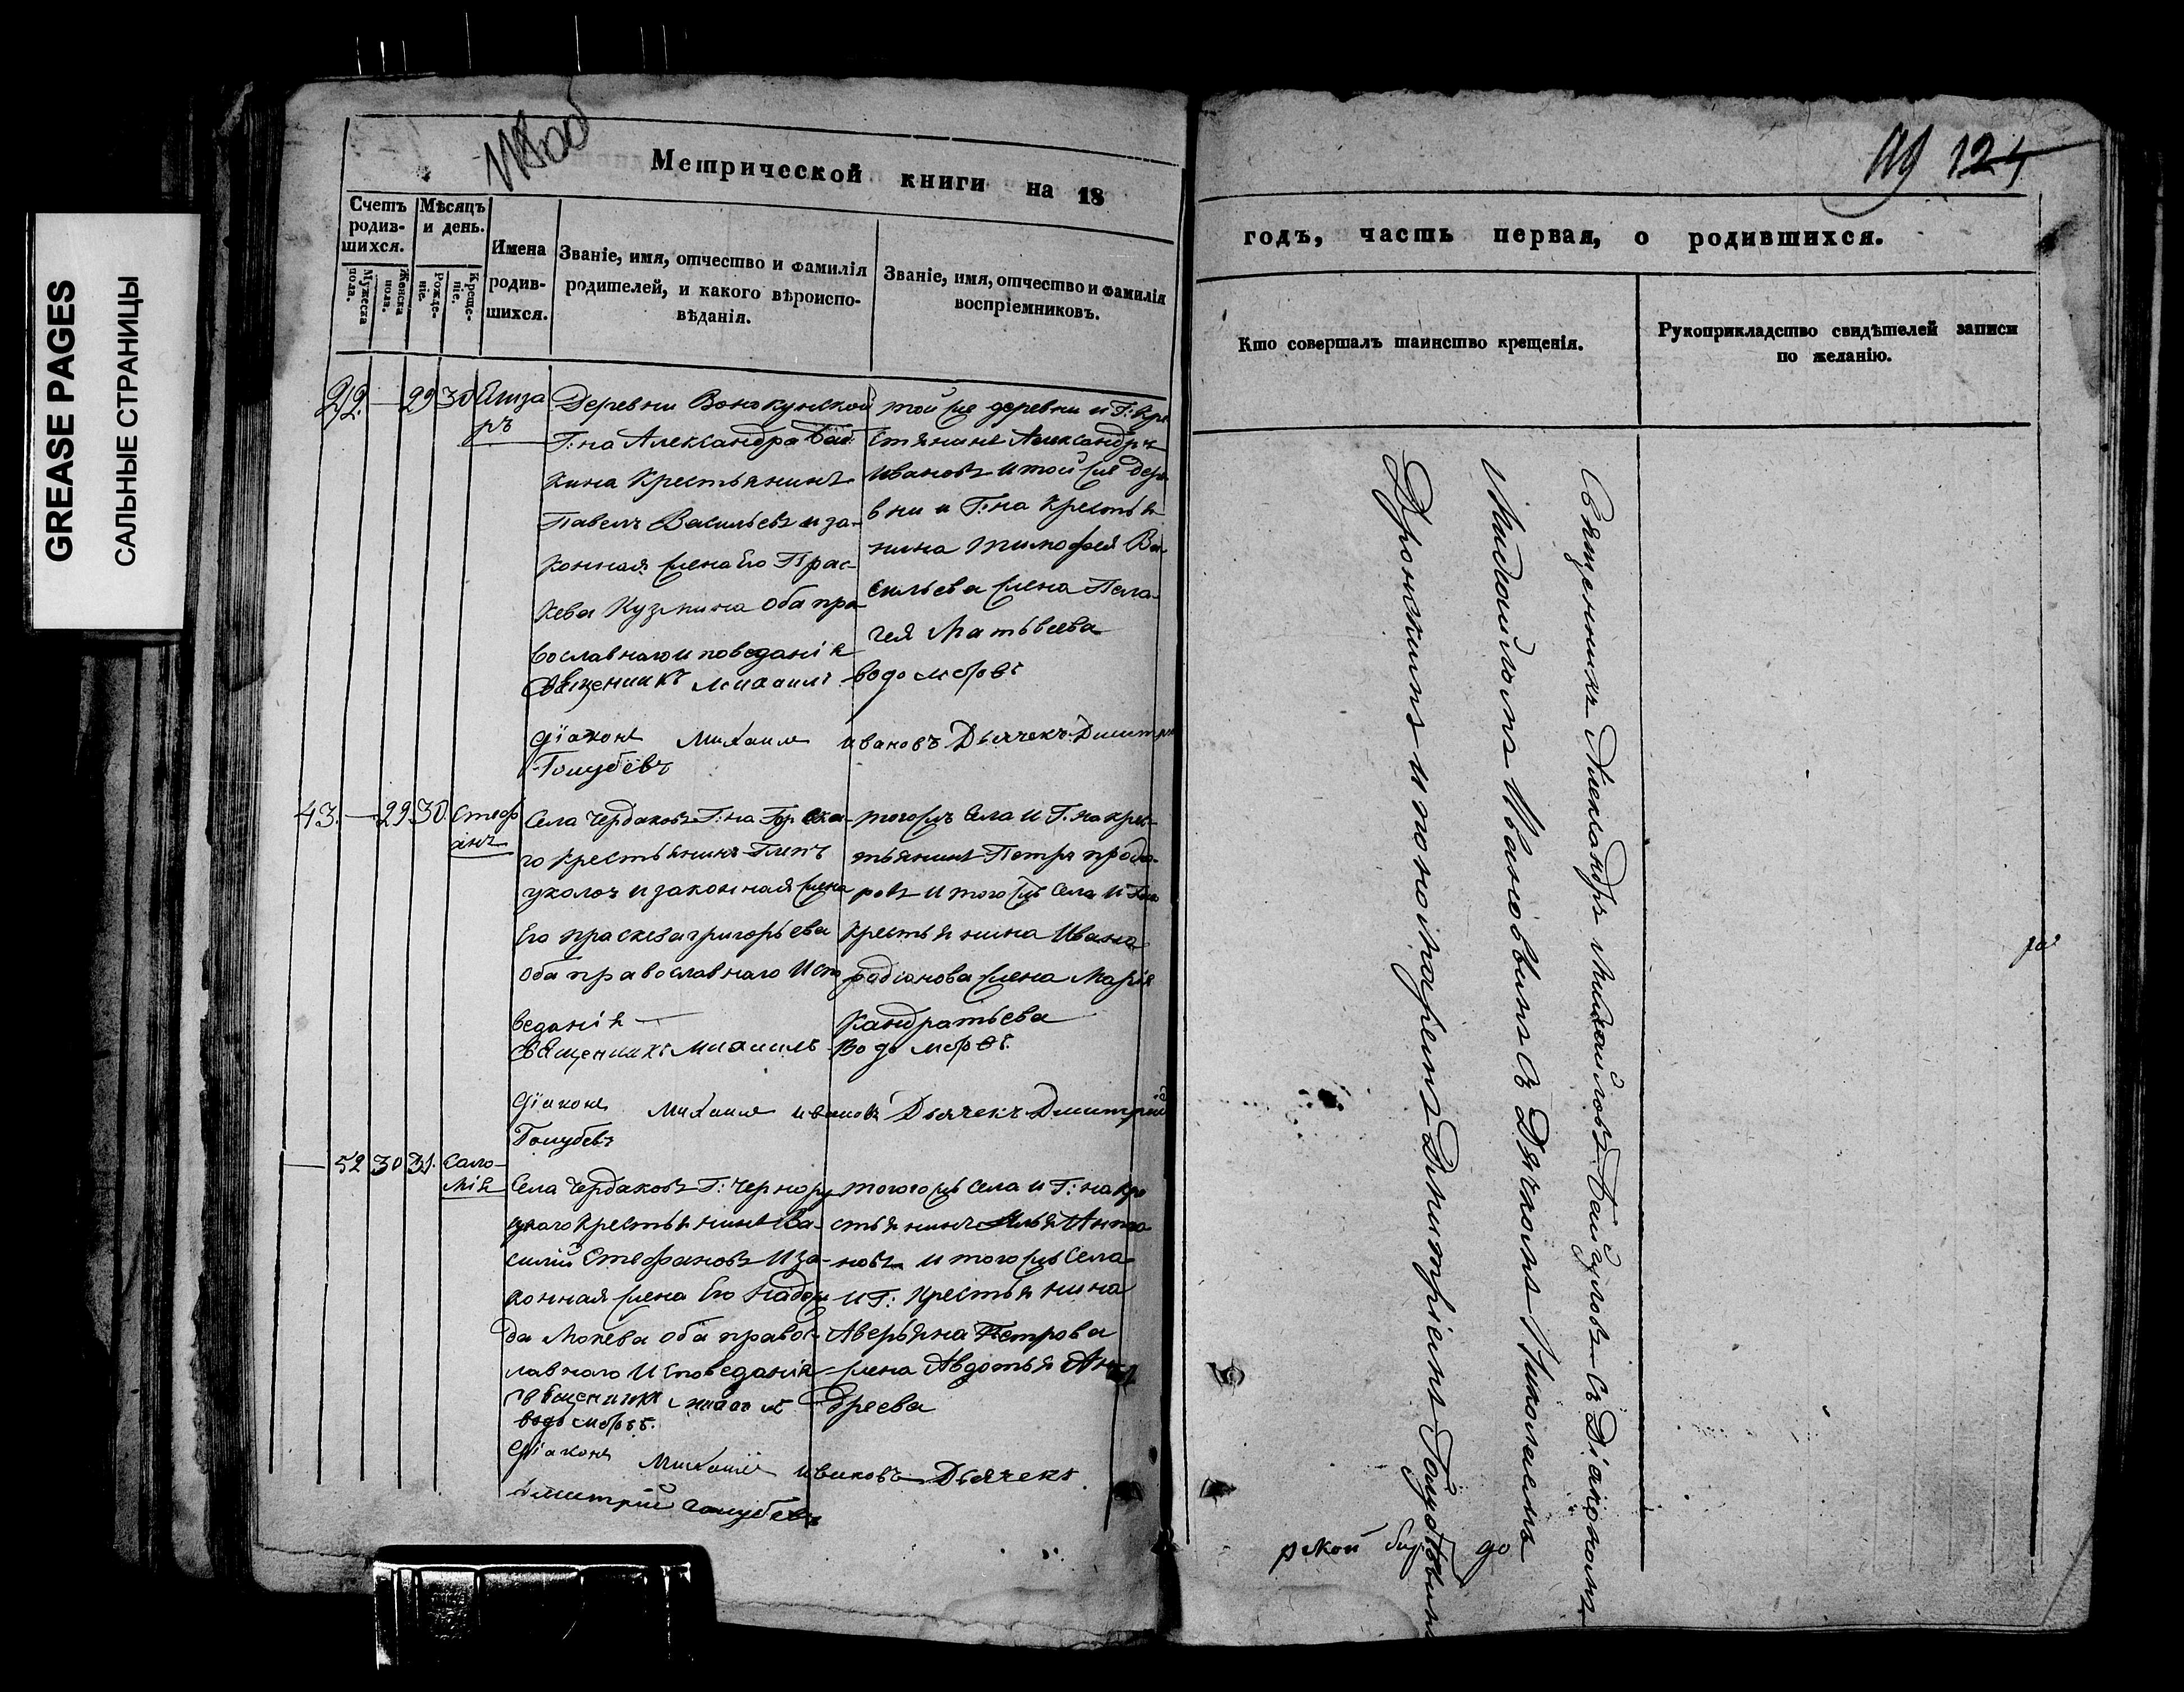 GREASE PAGES
САЛЬНЫЕ СТРАНИЦЫ
Метрической книги на 18
Счетъ родив-
шихся.
Мужеска пола.
Женска пола.
Мѣсяцъ
и день.
Рожде-
ніе.
Креще-
ніе.
Имена
родив-
шихся.
Званіе, имя, отчество и фамилія
родителей, и какого вѣроиспо-
вѣданія.
Званіе, имя, отчество и фамилія
воспріемниковъ.
42. — 29 30 Елиза
ръ
Деревни
Г: на Александра
кина Крестьянинъ
Павелъ Васильевъ и за-
конная жена Его Прас-
кева Кузмина оба пра
вославнаго исповеданія
той же деревни и Г: кре
стьянинъ Александръ
Ивановъ и той же дере
вни и Г: на крестья
нина Тимофея Ва
сильева жена Пела-
гея Матвѣева
Священникъ Михаилъ Водомеровъ
Діаконъ Михаилъ Ивановъ Дьячекъ Дмитри
Голубевъ
43. — 29 30. Стеф
анъ
Села Чердаковъ Г: на
го Крестьянинъ
и законная жена
Его Праскева Григорьева
Оба православнаго Испо
веданія —
тогожъ Села и Г. на крес-
тьянинъ Петръ
ровъ и того жъ Села и
Крестьянина Ивана
Радіонова жена Марія
Кандратьева
Священникъ Михаилъ Водомеровъ.
Діаконъ Михаилъ Ивановъ Дьячекъ Дмитрій
Голубевъ
— 52 30 31. Сало-
мія
Села Чердаковъ Г:
Крестьянинъ Ва-
силій Стефановъ и за-
конная жена Его Надеж
да Мокева оба правос-
лавнаго Исповеданія
тогожъ Села и Г: на кре
стьянинъ Илья Анто
новъ и того жъ Села
и Г: Крестьянина
Аверьяна Петрова
жена Авдотья Ан
дреева
Священникъ Михаилъ
Водомеровъ.
Діаконъ Михаилъ Ивановъ Дьячекъ
Дмитрій Голубевъ
124
годъ, часть первая, о родившихся.
Кто совершалъ таинство крещенія.
Рукоприкладство свидѣтелей записи
по желанію.
Священникъ Александръ Михайловъ съ Діакономъ
Михайломъ Ивановымъ съ Дячкомъ Николаемъ
и понамаремъ Димитріемъ Голубевымъ